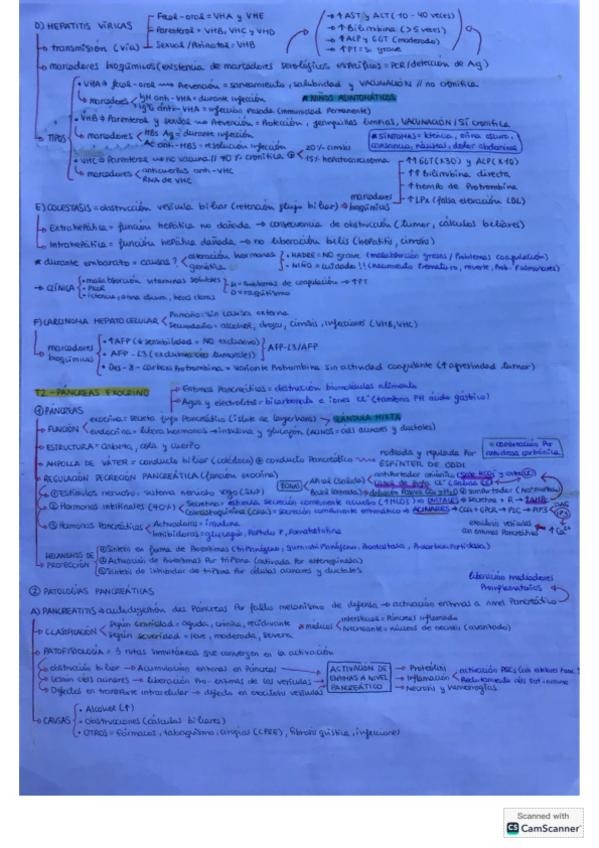 D) HEPATITIS VÍRICAS
Fecal-oral = VHA y VHE
Parenteral = VHB, VHC y VHD
Sexual / Perinatal = VHB
transmisión (vía)
↑ AST y ALT (10-40 veces)
↑ Bilirrubina (>5 veces)
↑ ALP y GGT (moderado)
↑ PT = si grave
marcadores bioquímicos (existencia de marcadores serológicos específicos = PCR/detección de Ag)
TIPOS
• VHA → fecal-oral → Prevención = saneamiento, salubridad y VACUNACIÓN // no cronifica
marcadores
IgM anti-VHA = durante infección
IgG anti-VHA = infección pasada (inmunidad permanente)
* NIÑOS ASINTOMÁTICOS
• VHB → Parenteral y sexual → Prevención = Protección, jeringuillas limpias, VACUNACIÓN / SÍ cronifica
marcadores
HBs Ag = durante infección
Ac anti-HBs = resolución infección
* SÍNTOMAS = ictericia, orina oscura, cansancio, náuseas, dolor abdominal
• VHC → Parenteral → no vacuna // 70% cronifica
20% cirrosis
15% hepatocarcinoma
marcadores
anticuerpos anti-VHC
RNA de VHC
E) COLESTASIS = obstrucción vesícula biliar (retención flujo biliar) → marcadores bioquímicos
↑↑ GGT (x30) y ALP (x10)
↑↑ Bilirrubina directa
↑ tiempo de Protrombina
↑ LPx (falsa elevación LDL)
Extrahepática = función hepática no dañada → consecuencia de obstrucción (tumor, cálculos biliares)
Intrahepática = función hepática dañada → no liberación bilis (hepatitis, cirrosis)
* durante embarazo = causas?
alteración hormonas
genética
• MADRE = NO grave (malabsorción grasas / Problemas coagulación)
• NIÑO = cuidado!! (nacimiento prematuro, muerte, Prob. Pulmonares)
→ CLÍNICA
• malabsorción vitaminas solubles
K = problemas de coagulación → ↑PT
D = raquitismo
• ictericia, orina oscura, heces claras
F) CARCINOMA HEPATOCELULAR
Primario = sin causa externa
Secundario = alcohol, drogas, cirrosis, infecciones (VHB, VHC)
marcadores bioquímicos
• ↑ AFP (↓ sensibilidad = NO exclusivo)
• AFP-L3 (exclusivo células tumorales)
AFP-L3/AFP
• Des-γ-carboxi Protrombina = variante Protrombina sin actividad coagulante (↑ agresividad tumor)
T2 - PÁNCREAS EXOCRINO
Enzimas Pancreáticas = destrucción biomoléculas alimento
Agua y electrolitos = bicarbonato e iones Cl⁻ (tampona PH ácido gástrico)
① PÁNCREAS
FUNCIÓN
exocrina = secreta jugo Pancreático
endocrina = libera hormonas → insulina y glucagón
GLÁNDULA MIXTA
ESTRUCTURA = cabeza, cola y cuerpo
AMPOLLA DE VÁTER = conducto biliar (colédoco) ⊕ conducto Pancreático → rodeada y regulada por ESFÍNTER DE ODDI
REGULACIÓN SECRECIÓN PANCREÁTICA (función exocrina)
① Estímulos nervioso = sistema nervioso vago (SNP)
② Hormonas intestinales (70%)
③ Hormonas Pancreáticas
Activadoras = insulina
Inhibidoras = glucagón, Péptido P, Somatostatina
MECANISMOS DE PROTECCIÓN
① Síntesis en forma de Proenzimas
② Activación de Proenzimas por tripsina (activada por enteroquinasa)
③ Síntesis de inhibidor de tripsina por células acinares y ductales
② PATOLOGÍAS PANCREÁTICAS
liberación mediadores Proinflamatorios
A) PANCREATITIS → autodigestión del Páncreas por fallo mecanismo de defensa → activación enzimas a nivel Pancreático
CLASIFICACIÓN
según gravedad = aguda, crónica, recidivante
según severidad = leve, moderada, severa
Intersticial = Páncreas inflamado
Necrosante = núcleos de necrosis (avanzado)
PATOFISIOLOGÍA = 3 rutas simultáneas que convergen en la activación
• obstrucción biliar → Acumulación enzimas en Páncreas
• Lesión céls acinares → liberación Pro-enzimas de las vesículas
• Defectos en transporte intracelular → defecto en exocitosis vesículas
ACTIVACIÓN DE ENZIMAS A NIVEL PANCREÁTICO
Proteólisis
Inflamación
Necrosis y hemorragias
CAUSAS
• Alcohol (↑)
• Obstrucciones (cálculos biliares)
• OTROS = fármacos, tabaquismo, cirugías (CPRE), fibrosis quística, infecciones
Scanned with
CS CamScanner